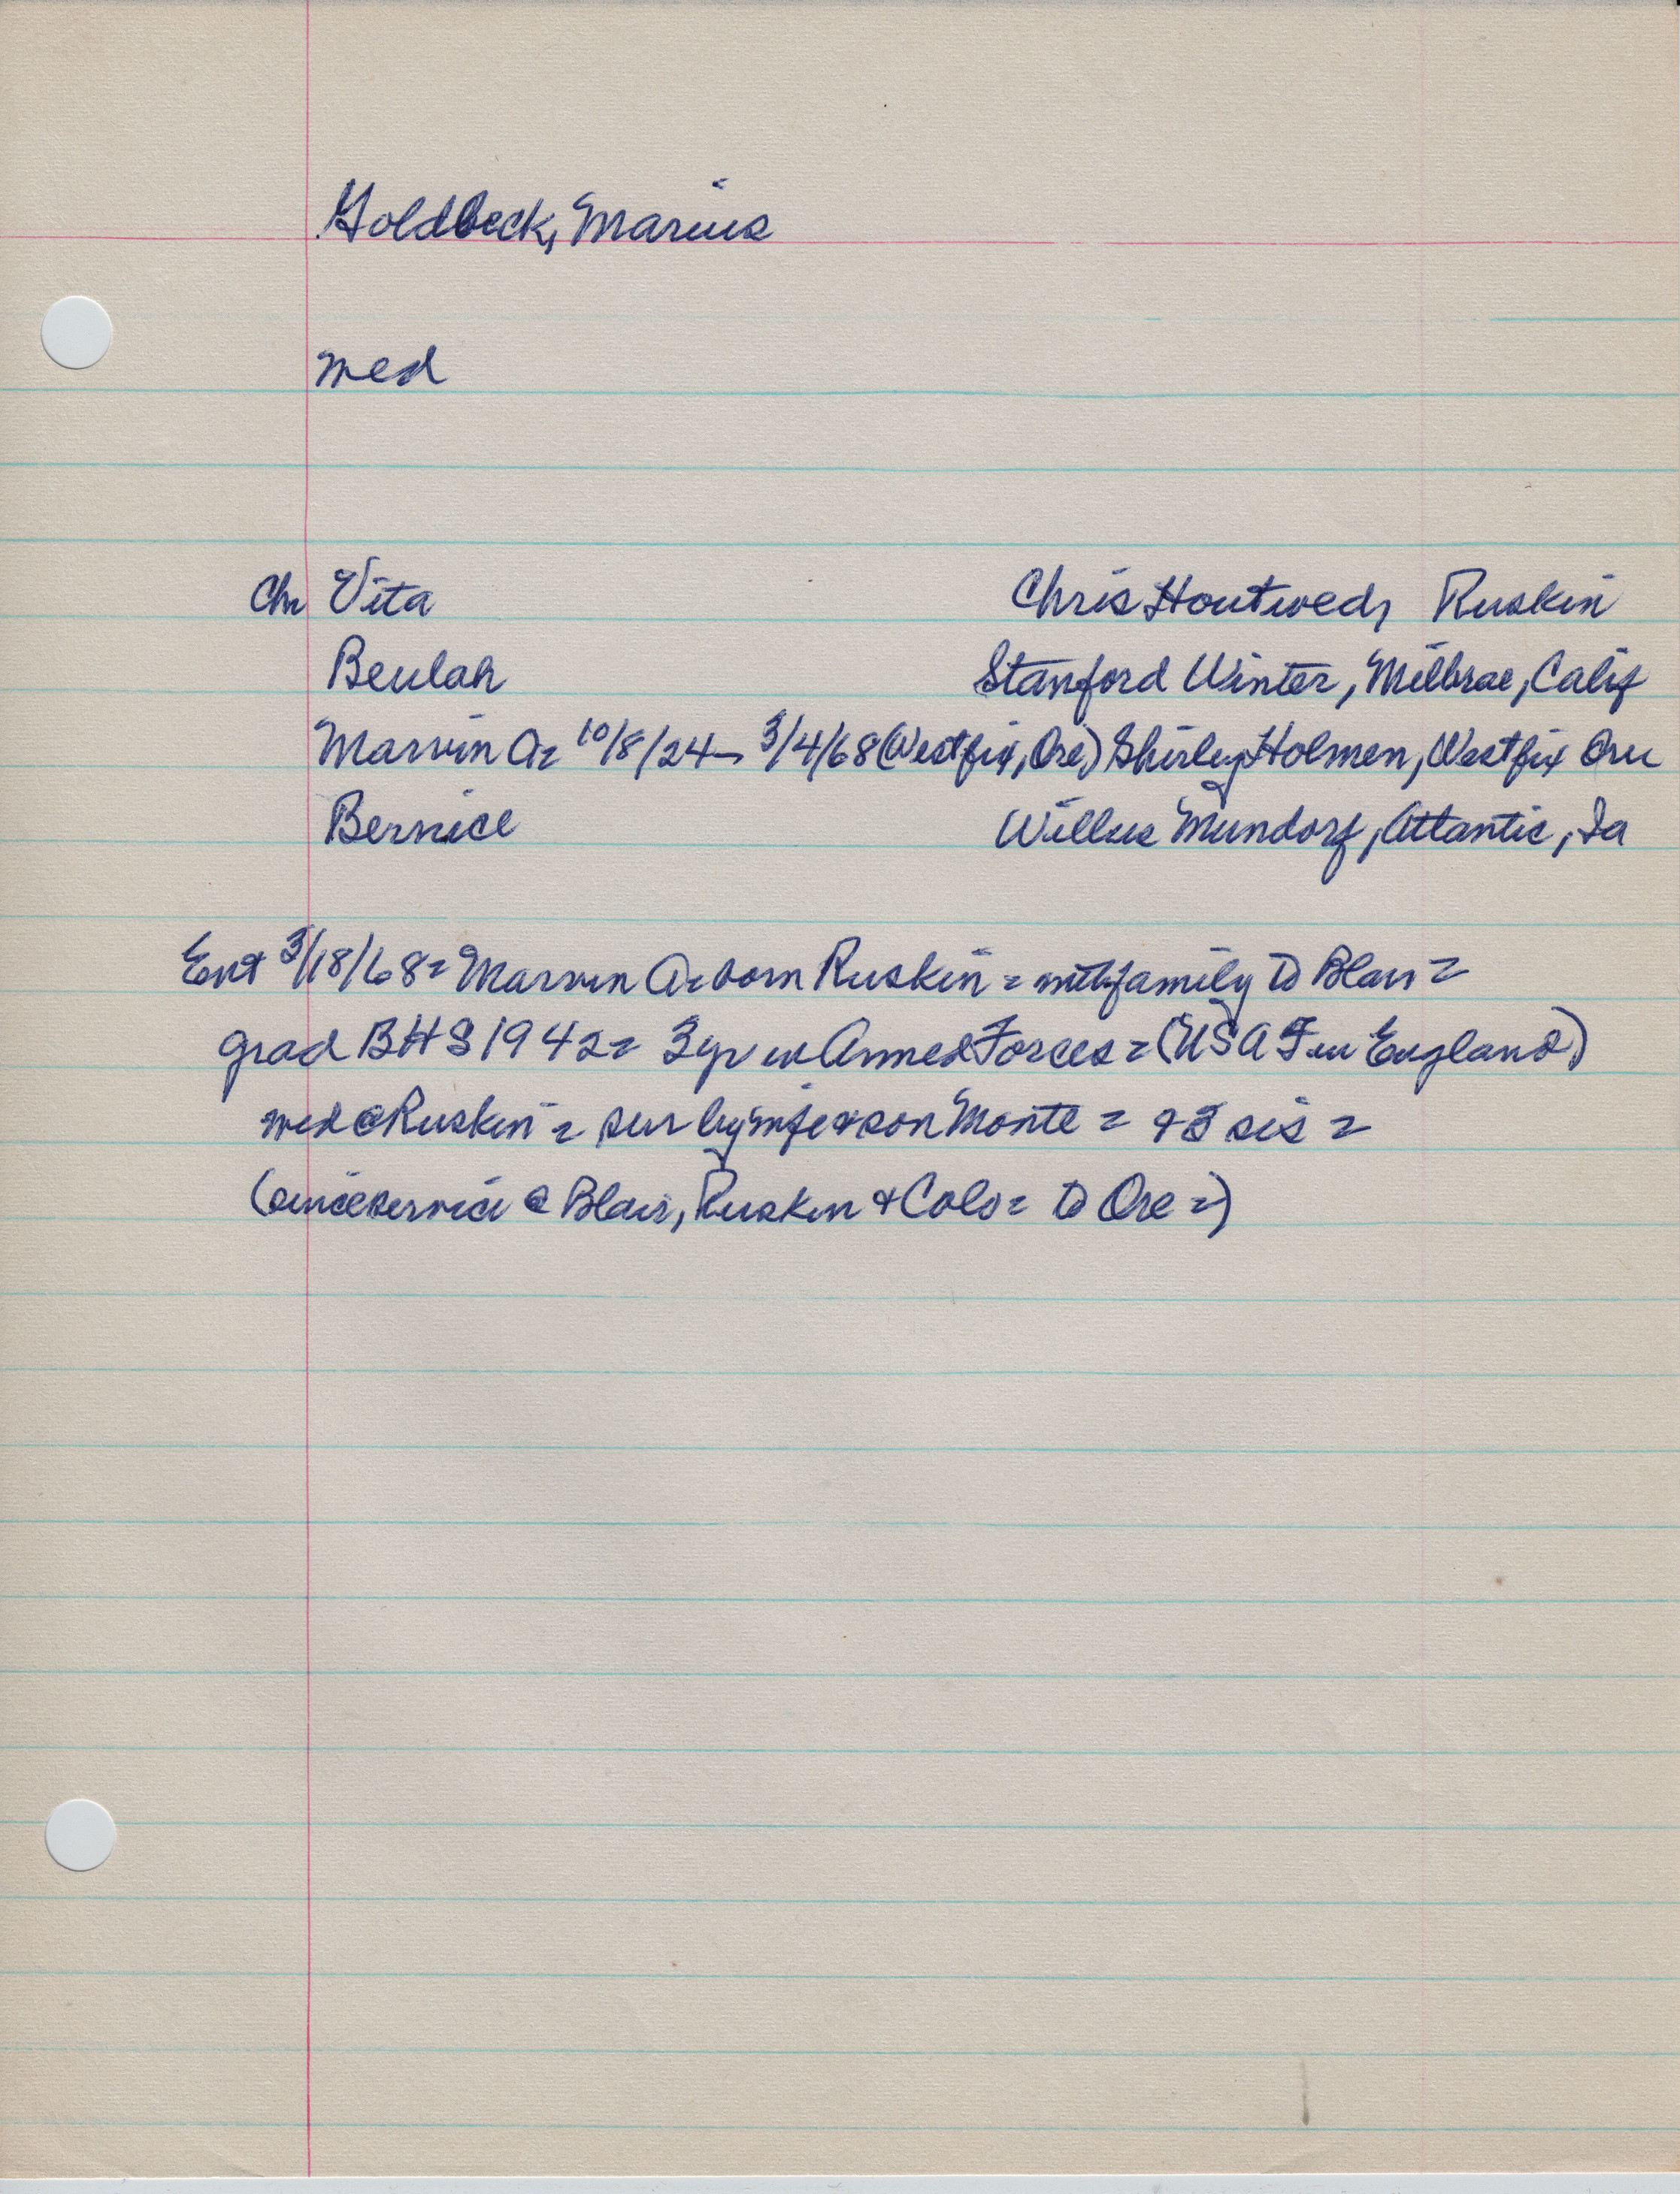 Goldbeck, Marius
med
Ch Vita Chris Houtwed, Ruskin
Beulah Stanford Winter, Milbrae, Calif
Marvin A= 10/8/24 - 3/4/68 (Westfix, Ore) Shirley Holmen, Westfix Ore
Bernice Willus Mundorf, Atlantic, Ia
Ent 3/18/68= Marvin A= born Ruskin = with family to Blair =
grad BHS 1942= 3 yr in Armed Forces = (USAF in England)
med @ Ruskin = sur by wife & son Monte = & 3 sis =
(since service @ Blair, Ruskin & Colo= to Ore =)